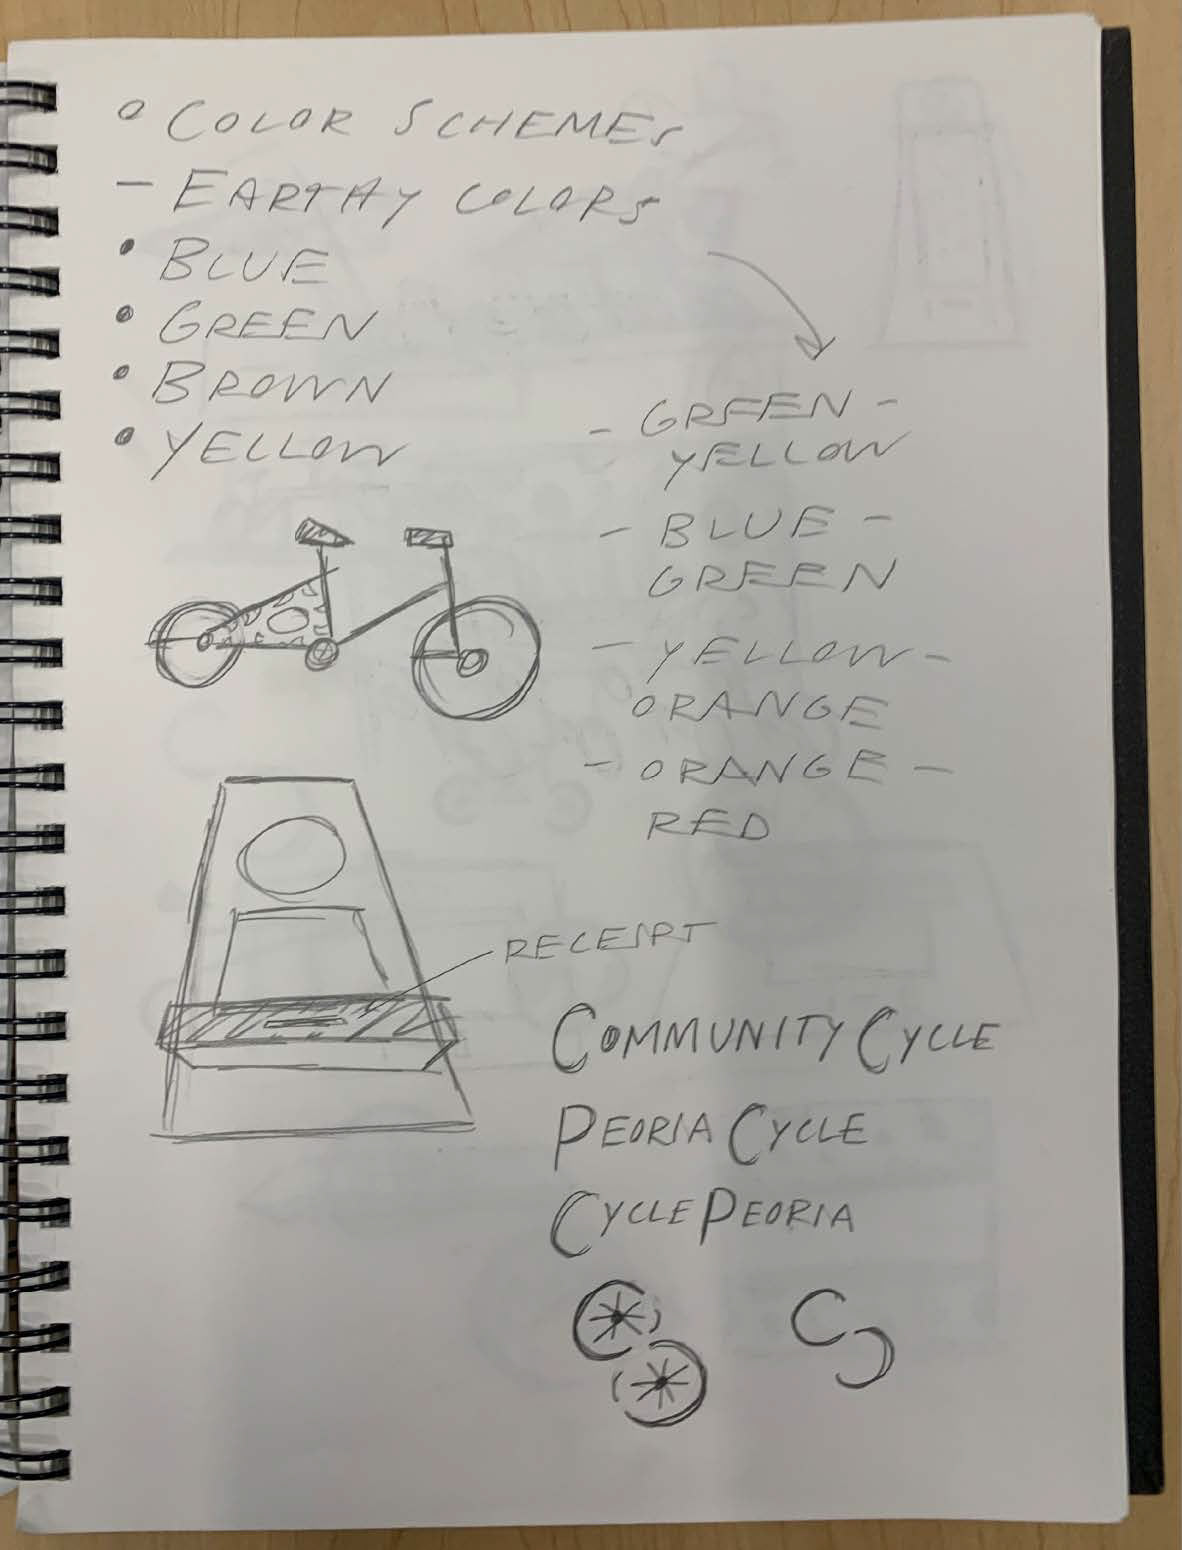 COLOR SCHEMES
- EARTHY COLORS
• BLUE
• GREEN
• BROWN
• YELLOW
- GREEN -
YELLOW
- BLUE -
GREEN
- YELLOW -
ORANGE
- ORANGE -
RED
RECEIPT
COMMUNITY CYCLE
PEORIA CYCLE
CYCLE PEORIA